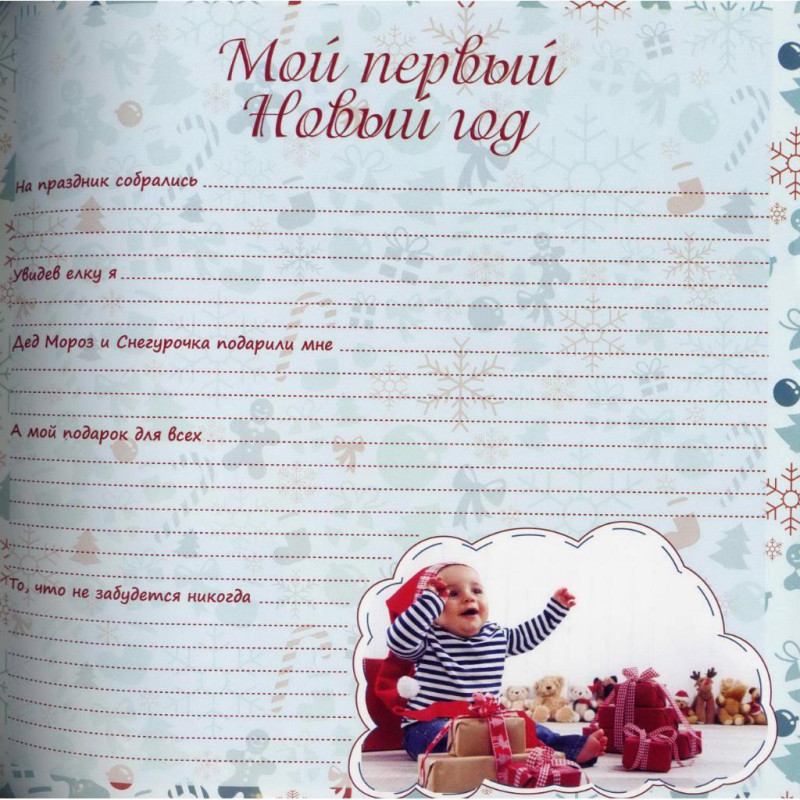 Мой первый
Новый год
На праздник собрались
Увидев елку я
Дед Мороз и Снегурочка подарили мне
А мой подарок для всех
То, что не забудется никогда